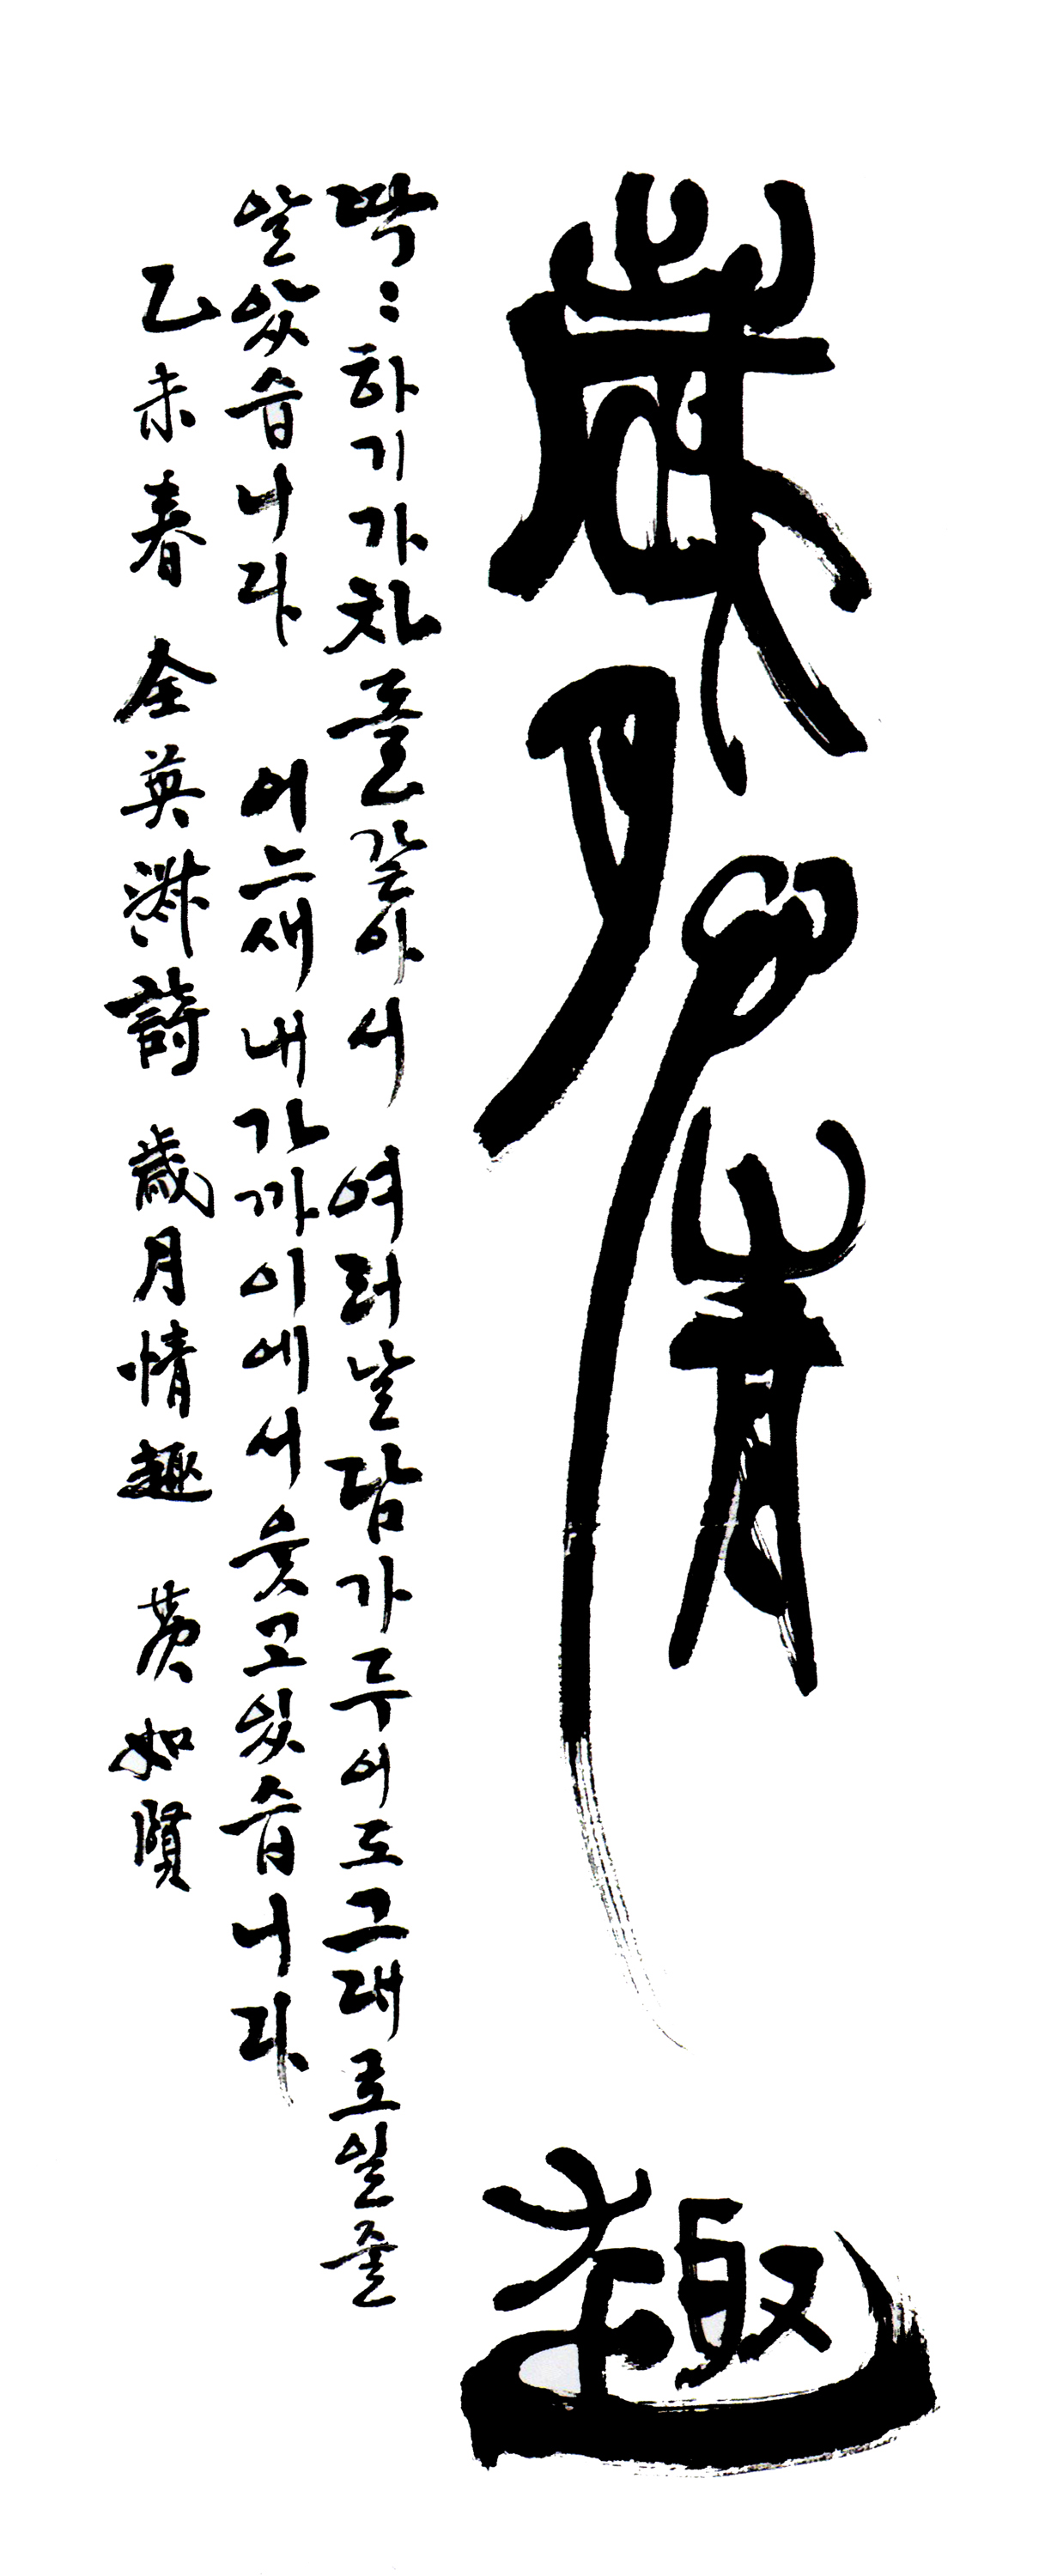 歲月情趣
딱〻하기가차돌같아서 여러날담가두어도그대로일줄
알았습니다 어느새내가까이에서웃고있습니다
乙未春 全英詩 歲月情趣 黃如賢